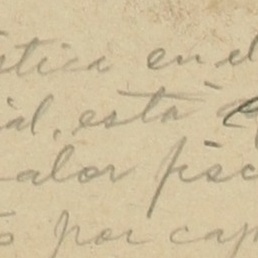 ística en el
ial, está
valor fisc
s por cap